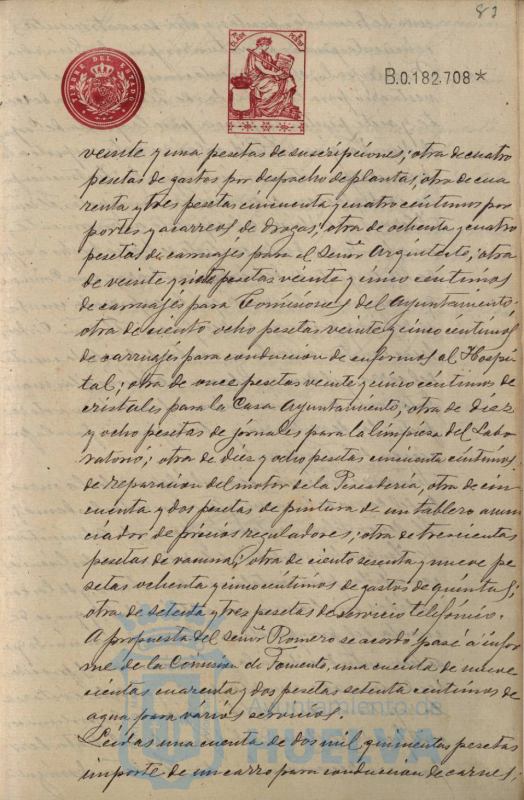 83
TIMBRE DEL ESTADO
B.0.182.708*
veinte y una pesetas de suscripciones; otra de cuatro
pesetas de gastos por despacho de plantas; otra de cua
renta y tres pesetas cincuenta y cuatro centimos por
portes y acarreos de drogas; otra de ochenta y cuatro
pesetas de carruajes para el Señor Arquitecto; otra
de veinte y siete pesetas veinte y cinco centimos
de carruajes para Comisiones del Ayuntamiento:
otra de ciento ocho pesetas veinte y cinco centimos
de carruajes para conduccion de enfermos al Hospi
tal; otra de once pesetas veinte y cinco centimos de
cristales para la Casa Ayuntamiento; otra de diez
y ocho pesetas de jornales para la limpiesa del Labo
ratorio; otra de diez y ocho pesetas cincuenta centimos
de reparacion del motor de la Pescaderia, otra de cin
cuenta y dos pesetas de pintura de un tablero anun
ciador de precios reguladores; otra de trescientas
pesetas de vacuna; otra de ciento sesenta y nueve pe
setas ochenta y cinco centimos de gastos de quintas;
otra de setenta y tres pesetas de servicio telefonico.
A propuesta del señor Romero se acordó pase á infor
me de la Comision de Fomento, una cuenta de nueve
cientas cuarenta y dos pesetas setenta centimos de
agua para varios servicios.
Leidas una cuenta de dos mil quinientas pesetas
importe de un carro para conduccion de carnes;
Ayuntamiento de
HUELVA